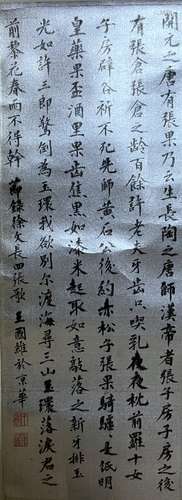 開元之唐有張果乃云生長陶之唐師漢帝者張子房子房之後
有張倉張倉之齡百餘許老夫牙齒只喫乳夜夜枕前羅十女
子房辟谷祈不死先師黃石公後約赤松子張果騎驢是低明
皇藥果盃酒裏果齒焦黑如漆米起取如意敲落之新牙排玉
光如許三郎驚倒為玉環我欲別尔渡海尋三山玉環落淚君之
前梨花春雨不得幹 節錄徐文長四張歌 王國雄於京華